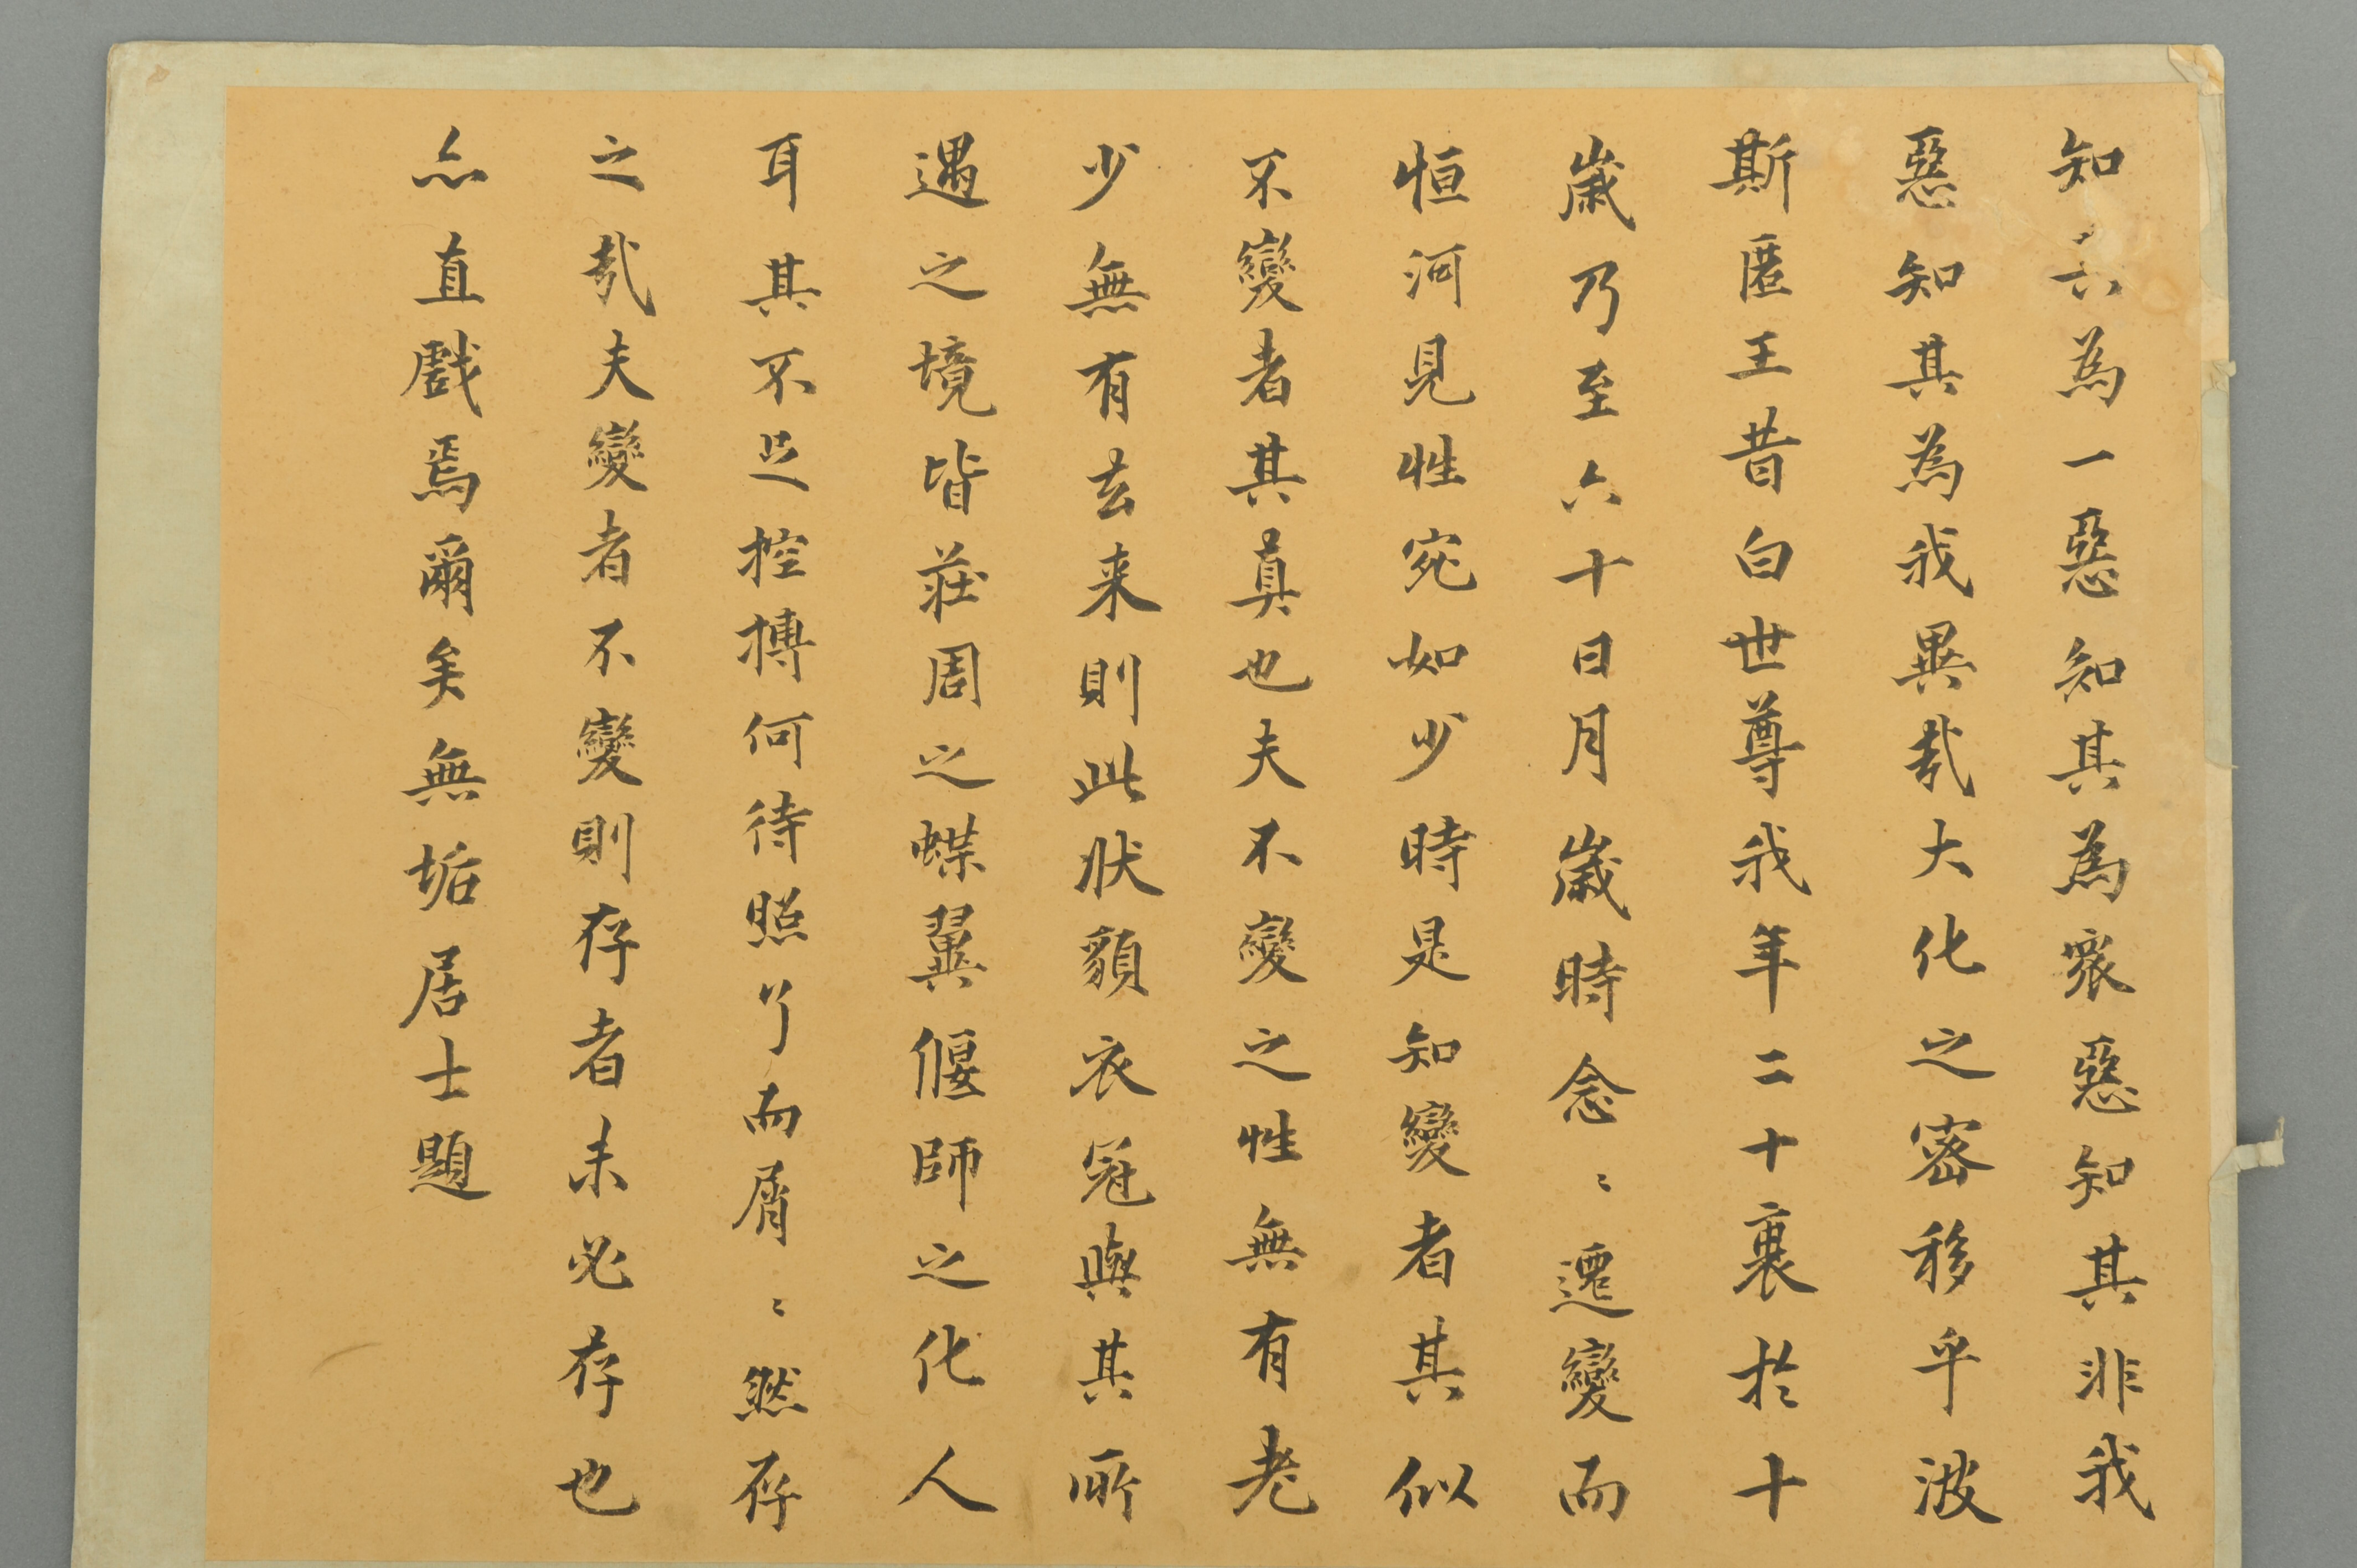 知其為一惡知其為衆惡知其非我
惡知其為我異哉大化之密移乎波
斯匿王昔白世尊我年二十衰於十
歲乃至六十日月歲時念〻遷變而
恒河見性宛如少時是知變者其似
不變者其真也夫不變之性無有老
少無有去来則此狀貌衣冠與其所
遇之境皆莊周之蝶翼偃師之化人
耳其不足控摶何待照了而屑〻然存
之哉夫變者不變則存者未必存也
亦直戲焉爾矣無垢居士題